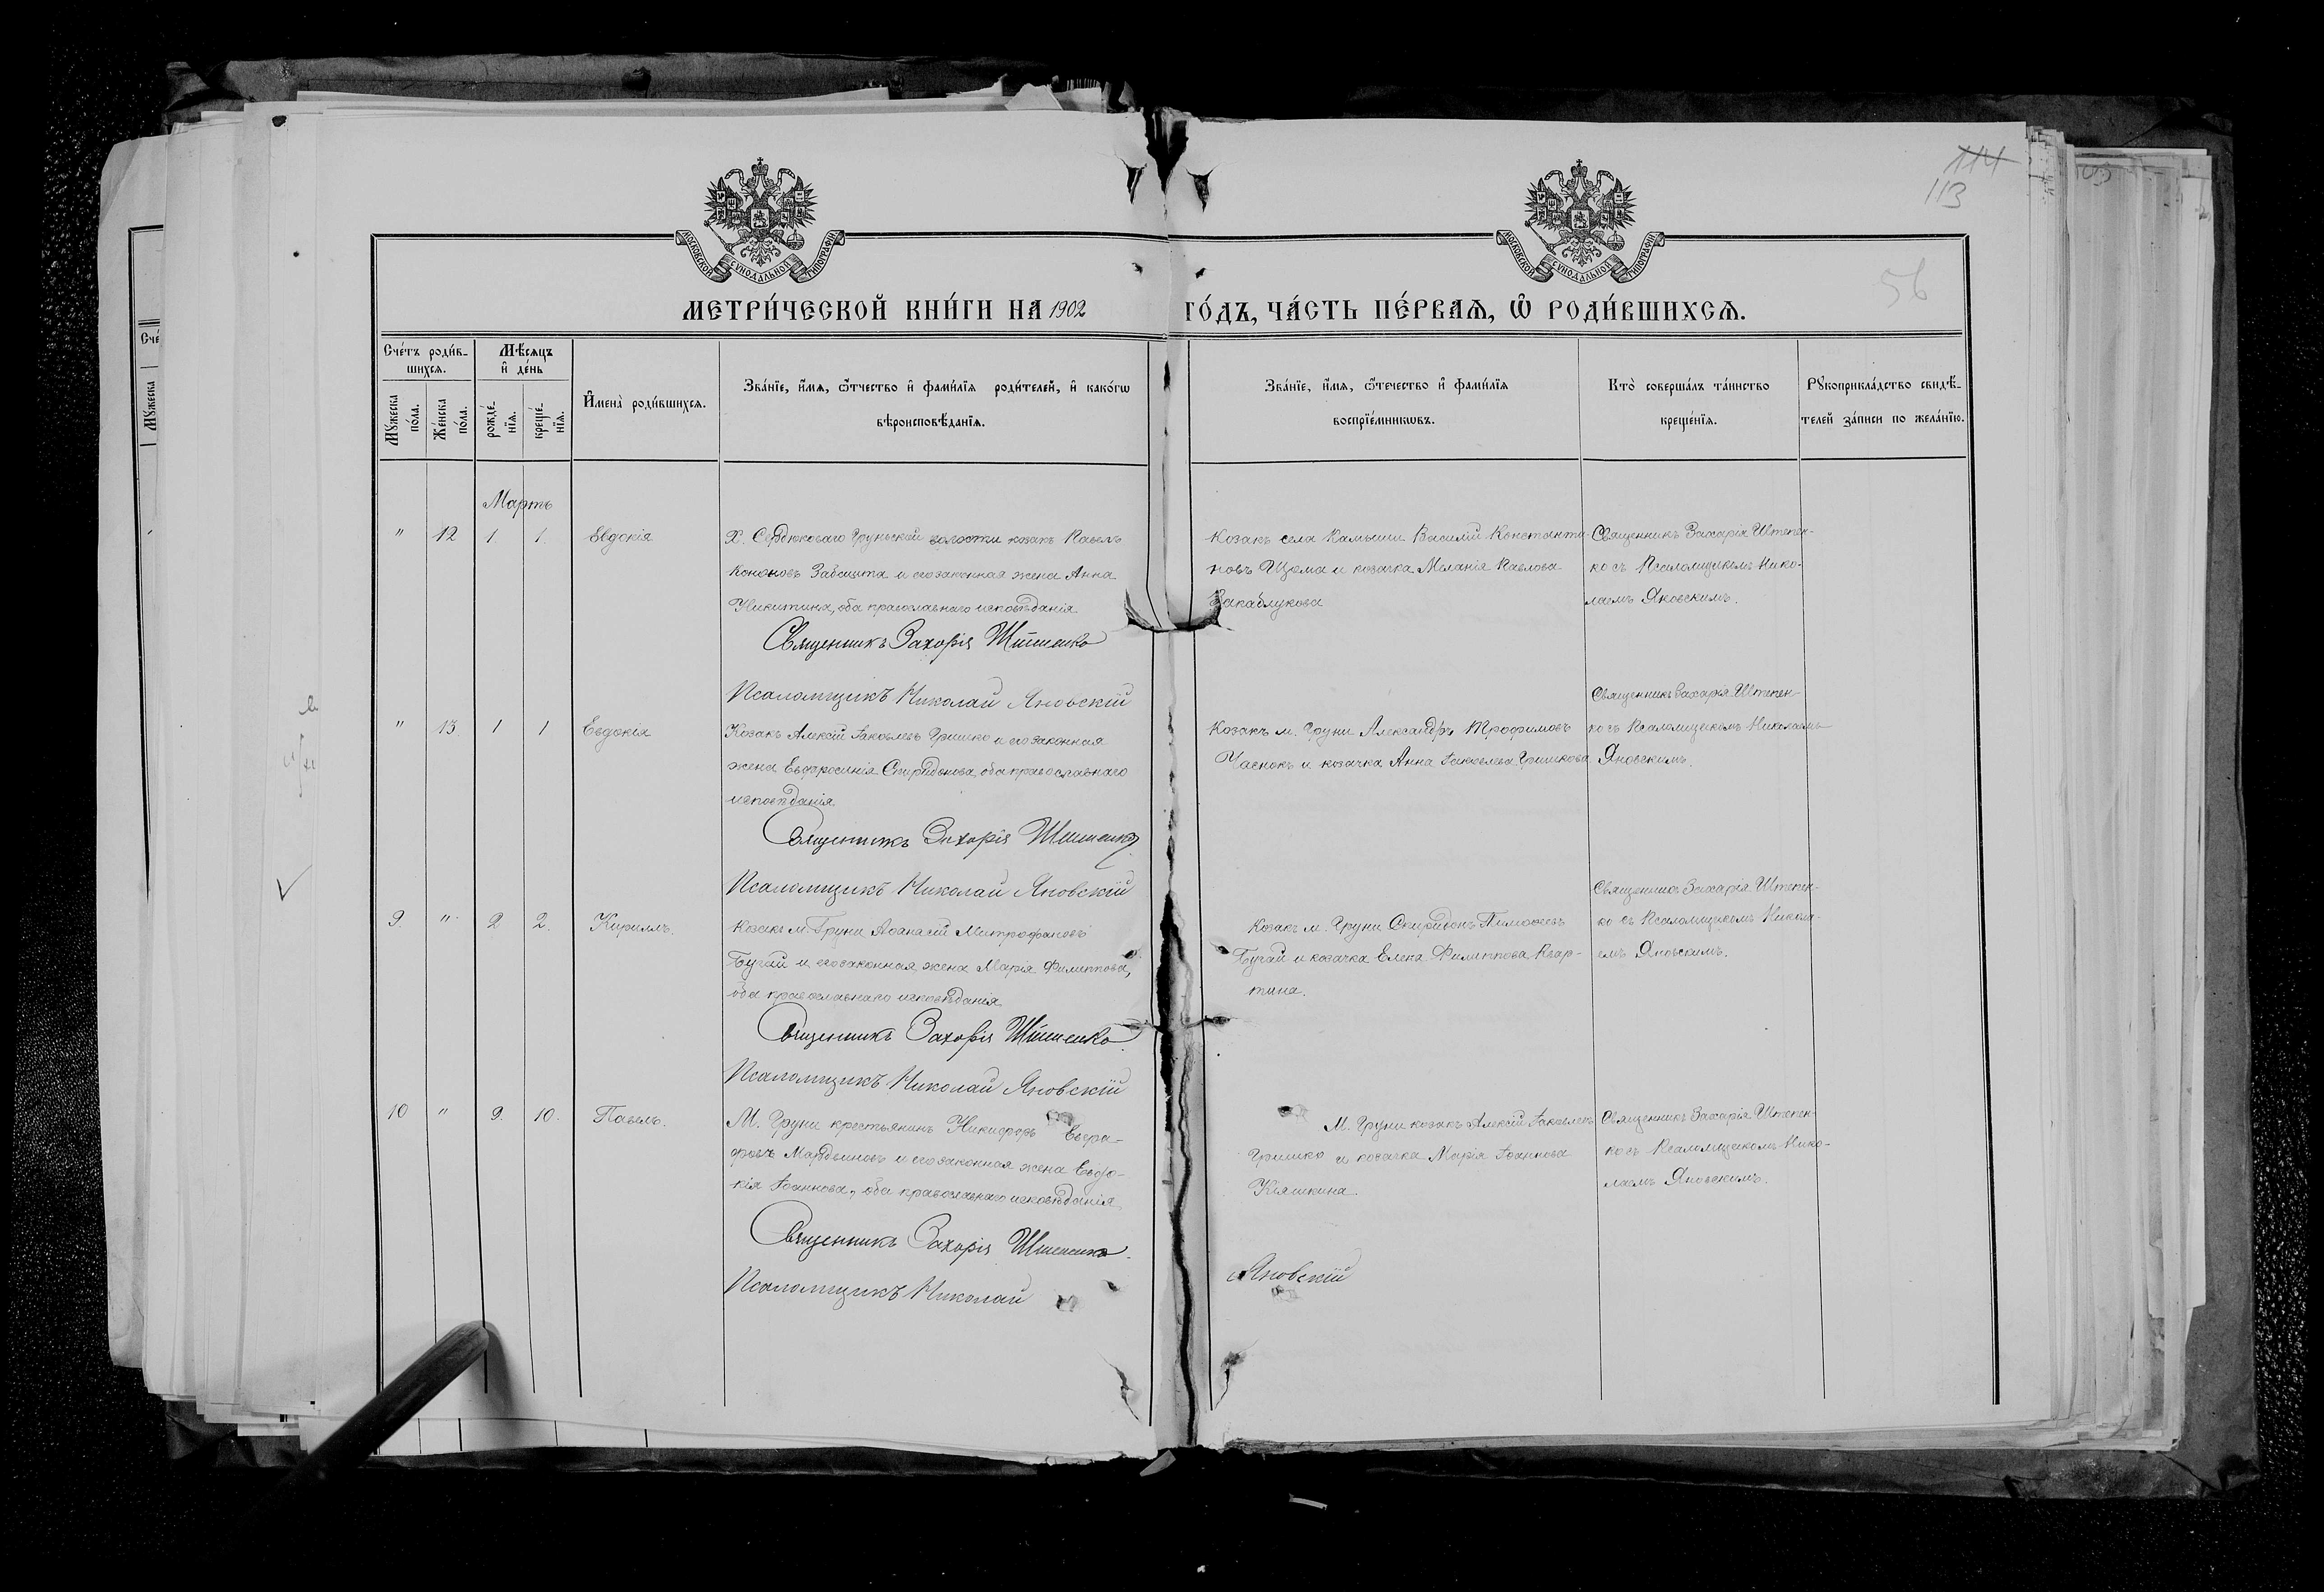 114
113
56
МОСКОВСКОЙ СѴНОДАЛЬНОЙ ТИПОГРАФІИ
МОСКОВСКОЙ СѴНОДАЛЬНОЙ ТИПОГРАФІИ
МЕТРИ́ЧЕСКОЙ КНИ́ГИ НА 1902 ГО́ДЪ, ЧА́СТЬ ПЕ́РВАѦ, Ѿ РОДИ́ВШИХСѦ.
Сче́тъ роди́в-
шихсѧ.
Мꙋ́жеска по́ла.
Же́нска по́ла.
Мѣ́сѧцъ и҆ де́нь
рожде́-нїѧ.
креще́-нїѧ.
И҆мена̀ роди́вшихсѧ.
Зва́нїе, и҆́мѧ, ѻ҆́тчество и҆ фами́лїѧ роди́телей, и҆ како́гѡ
вѣроисповѣ́данїѧ.
Зва́нїе, и҆́мѧ, ѻ҆те́чество и҆ фами́лїѧ
воспрїе́мникѡвъ.
Кто̀ соверша́лъ та́инство
креще́нїѧ.
Рꙋкоприкла́дство свидѣ́-
телей за́писи по жела́нїю.
Мартъ
" 12 1 1. Евдокія
Х. Сердюковаго Груньской волости козакъ Павелъ
Кононовъ и его законная жена Анна
Никитина, оба православнаго исповѣданія
Священникъ Захарія Штепенко
Псаломщикъ Николай Яновскій
Козакъ села Камыши Василій Константи-
новъ Щома и козачка Меланія Павлова
Закаблукова
Священникъ Захарія Штепен-
ко съ Псаломщикомъ Нико-
лаемъ Яновскимъ.
" 13 1 1 Евдокія
Козакъ Алексій Іаковлевъ Гришко и его законная
жена Евфросинія Спиридонова, оба православнаго
исповѣданія
Священникъ Захарія Штепенко
Псаломщикъ Николай Яновскій
Козакъ м. Груни Александръ Трофимовъ
Часнокъ и козачка Анна Іаковлева Гришкова
Священникъ Захарія Штепен-
ко съ Псаломщикомъ Николаемъ
Яновскимъ.
9. " 2 2. Кириллъ.
Козакъ м. Груни Аѳанасій Митрофановъ
Бугай и его законная жена Марія Филиппова,
оба православнаго исповѣданія
Священникъ Захарія Штепенко
Псаломщикъ Николай Яновскій
Козакъ м. Груни Спиридонъ Тимоѳеевъ
Бугай и козачка Елена Филиппова Квар-
тина.
Священникъ Захарія Штепен-
ко съ Псаломщикомъ Никола-
емъ Яновскимъ.
10 " 9. 10. Павелъ.
М. Груни крестьянинъ Никифоръ Евгра-
фовъ Мардвиновъ и его законная жена Евдо-
кія Іоаннова, оба православнаго исповѣданія
Священникъ Захарія Штепенко
Псаломщикъ Николай Яновскій
М. Груни козакъ Алексій Іаковлевъ
Гришко и козачка Марія Іоаннова
Кіяшкина.
Священникъ Захарія Штепен-
ко съ Псаломщикомъ Нико-
лаемъ Яновскимъ.